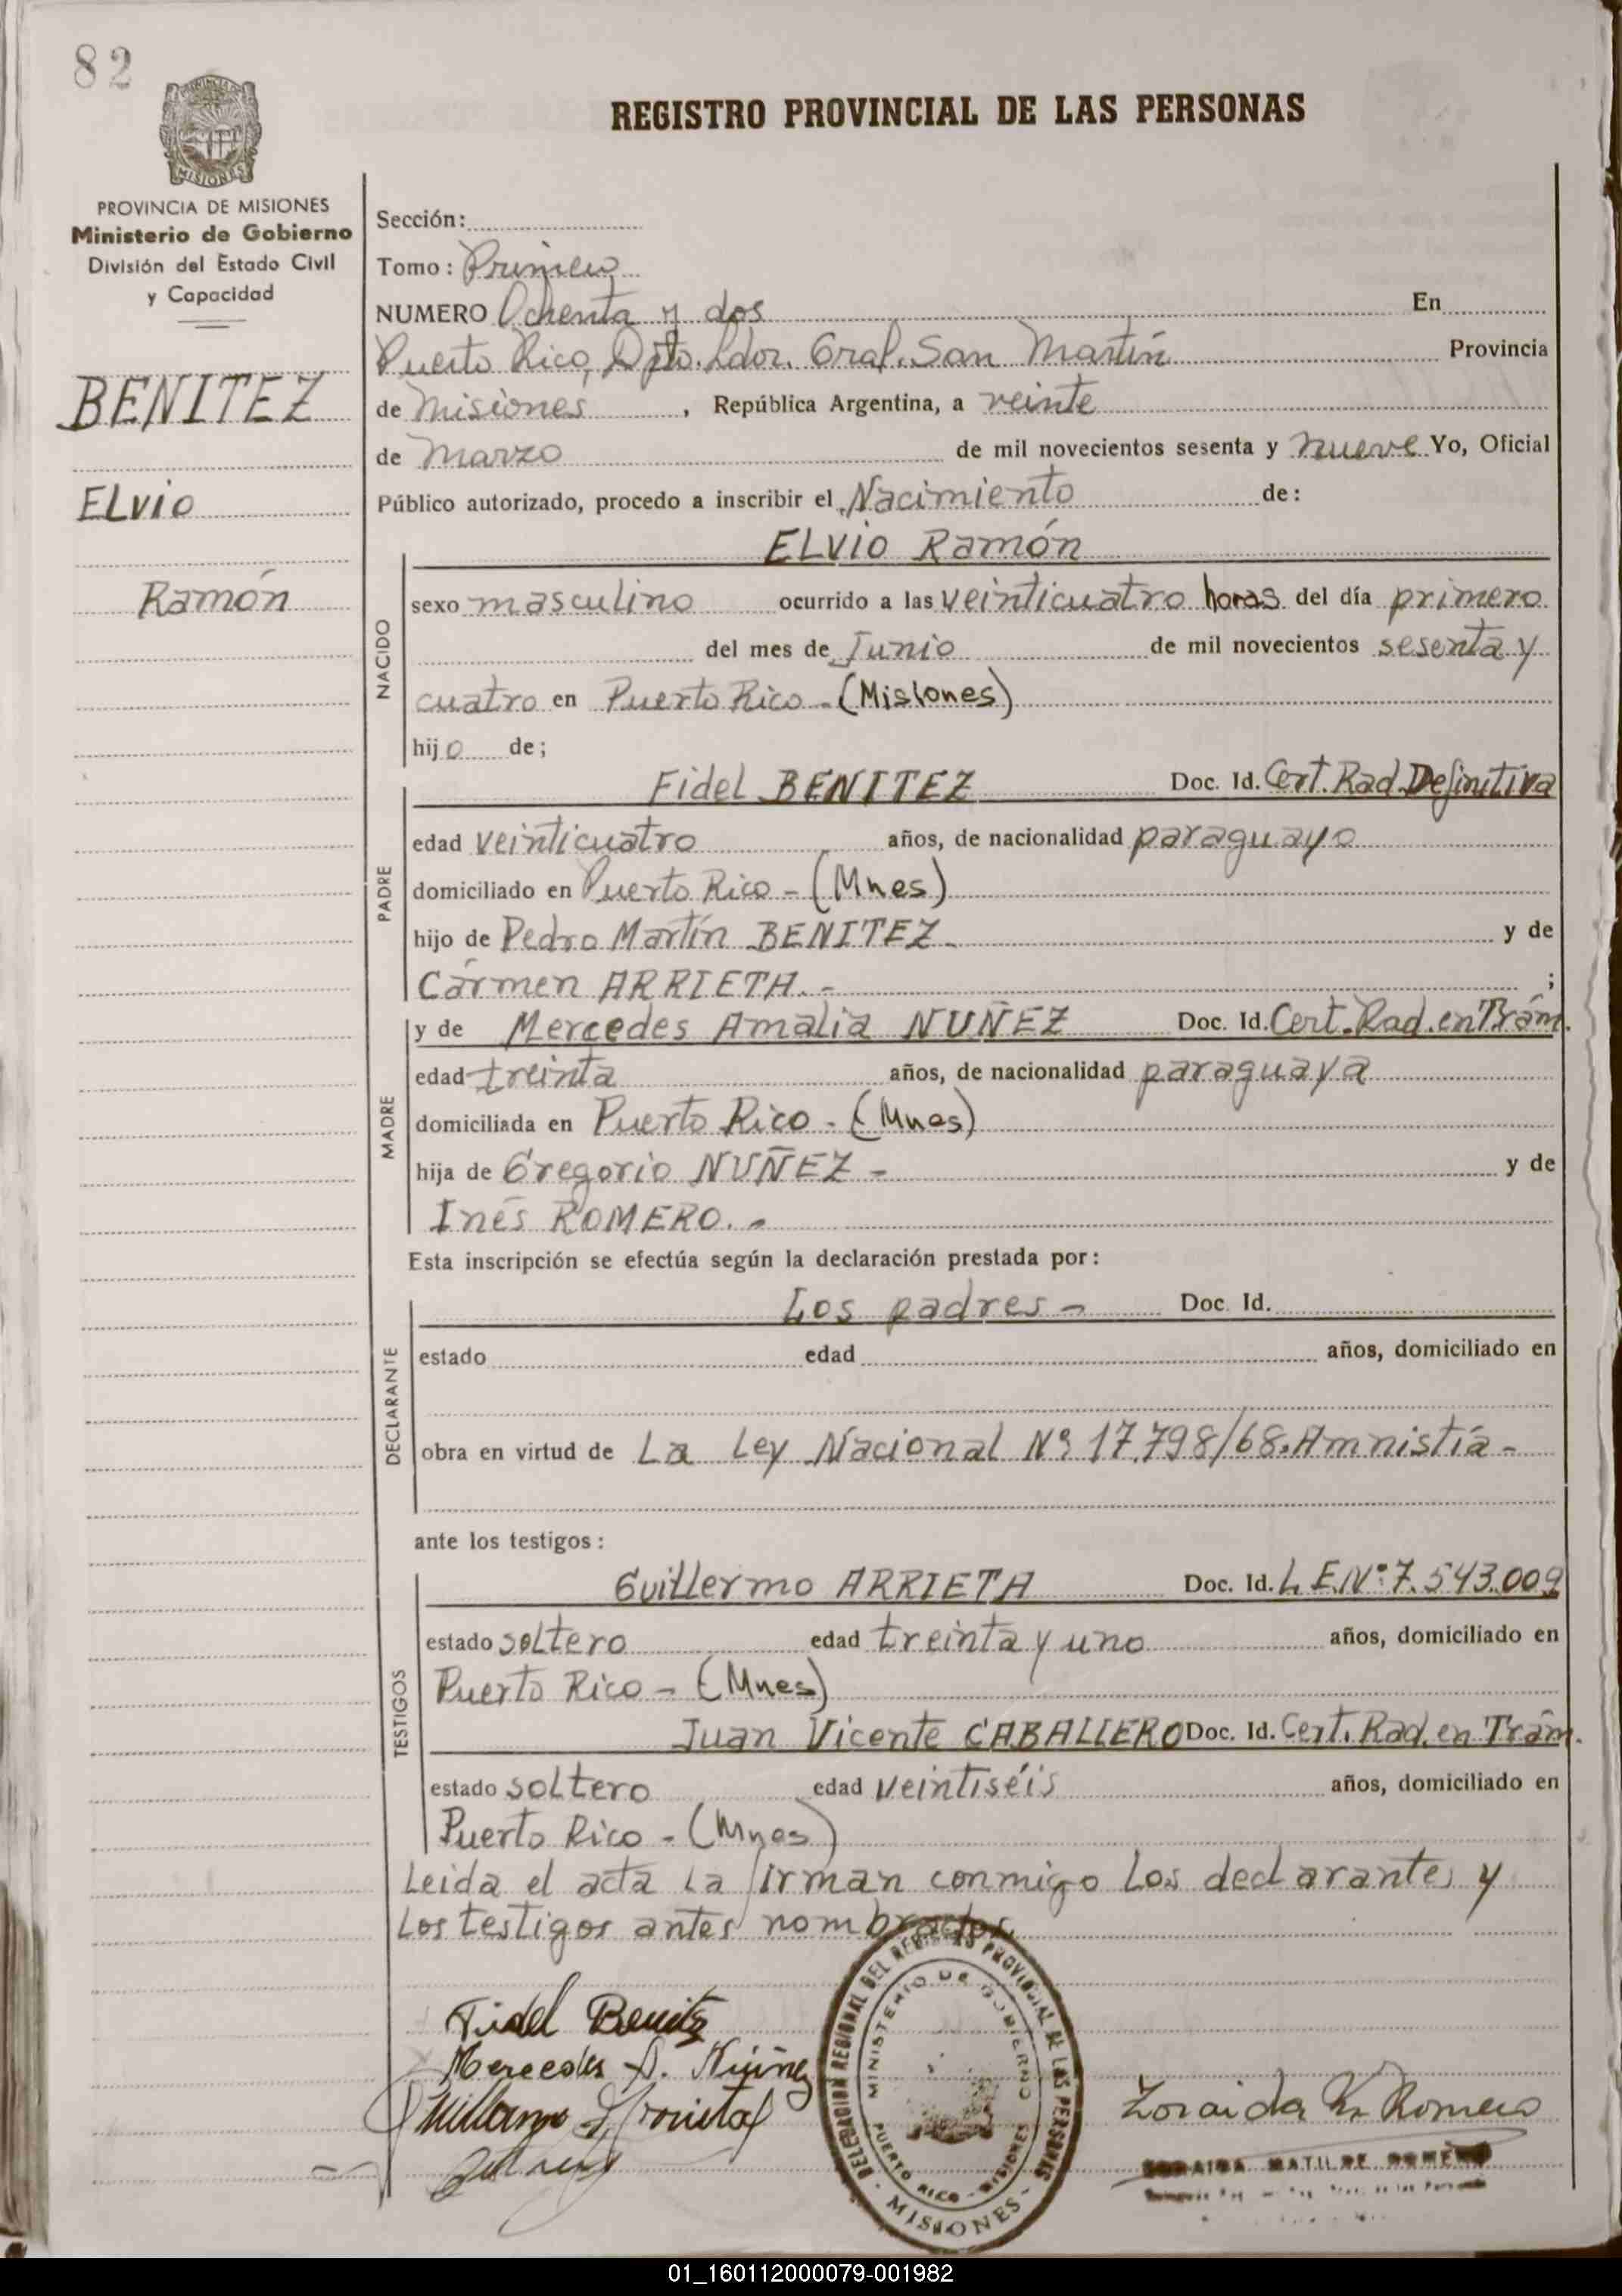 82
REGISTRO PROVINCIAL DE LAS PERSONAS
MISIONES
PROVINCIA DE MISIONES
Ministerio de Gobierno
División del Estado Civil
y Capacidad
BENITEZ
ELvio
Ramón
Sección:
Tomo: Primero
NUMERO Ochenta y dos En
Puerto Rico, Dpto. Ldor. Gral. San Martín Provincia
de Misiones, República Argentina, a veinte
de Marzo de mil novecientos sesenta y nueve Yo, Oficial
Público autorizado, procedo a inscribir el Nacimiento de:
ELVIO Ramón
NACIDO
sexo masculino ocurrido a las veinticuatro horas del día primero
del mes de Junio de mil novecientos sesenta y
cuatro en Puerto Rico - (Misiones)
hijo de;
PADRE
Fidel BENITEZ Doc. Id. Cert. Rad. Definitiva
edad veinticuatro años, de nacionalidad paraguayo
domiciliado en Puerto Rico - (Mnes)
hijo de Pedro Martín BENITEZ - y de
Cármen ARRIETA. - ;
MADRE
y de Mercedes Amalia NUÑEZ Doc. Id. Cert. Rad. en Trám.
edad treinta años, de nacionalidad paraguaya
domiciliada en Puerto Rico - (Mnes)
hija de Gregorio NUÑEZ - y de
Inés ROMERO. -
Esta inscripción se efectúa según la declaración prestada por:
DECLARANTE
Los padres - Doc. Id.
estado edad años, domiciliado en
obra en virtud de La Ley Nacional Nº 17.798/68. Amnistía -
ante los testigos:
TESTIGOS
Guillermo ARRIETA Doc. Id. L.E.Nº 7.543.009
estado soltero edad treinta y uno años, domiciliado en
Puerto Rico - (Mnes)
Juan Vicente CABALLERO Doc. Id. Cert. Rad. en Trám.
estado soltero edad veintiséis años, domiciliado en
Puerto Rico - (Mnes)
Leida el acta la firman conmigo los declarantes y
los testigos antes nombrados
Fidel Benitez
Mercedes A. Núñez
Guillermo Arrieta
DELEGACION REGIONAL DEL REGISTRO PROVINCIAL DE LAS PERSONAS
MINISTERIO DE GOBIERNO
PUERTO RICO - MISIONES
- MISIONES -
Zoraida M. Romero
ZORAIDA MATILDE ROMERO
01_160112000079-001982